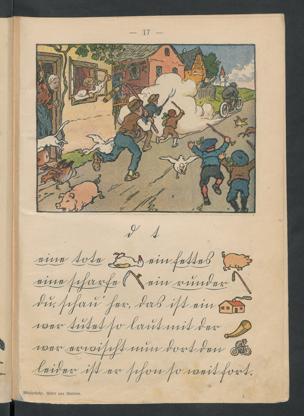 — 17 —
d t
eine tote ein fettes
eine scharfe ein runder
du, schau her, das ist ein
wer tutet so laut mit der
wer erwischt nun dort den
leider ist er schon so weit fort.